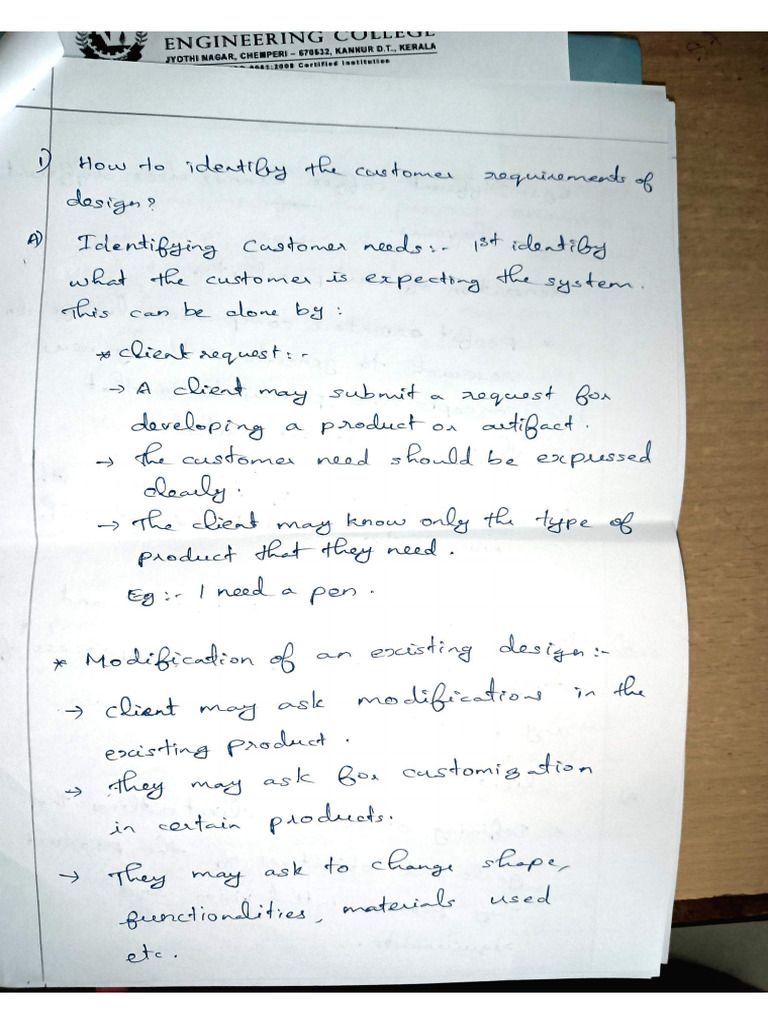 ENGINEERING COLLEGE
JYOTHI NAGAR, CHEMPERI – 670632, KANNUR D.T., KERALA
:2008 Certified Institution
1) How to identify the customer requirements of
design?
A) Identifying customer needs:- 1st identify
what the customer is expecting the system.
This can be done by:
* Client request:-
→ A client may submit a request for
developing a product or artifact.
→ The customer need should be expressed
clearly.
→ The client may know only the type of
product that they need.
Eg:- I need a pen.
* Modification of an existing design:-
→ Client may ask modifications in the
existing product.
→ They may ask for customization
in certain products.
→ They may ask to change shape,
functionalities, materials used
etc.